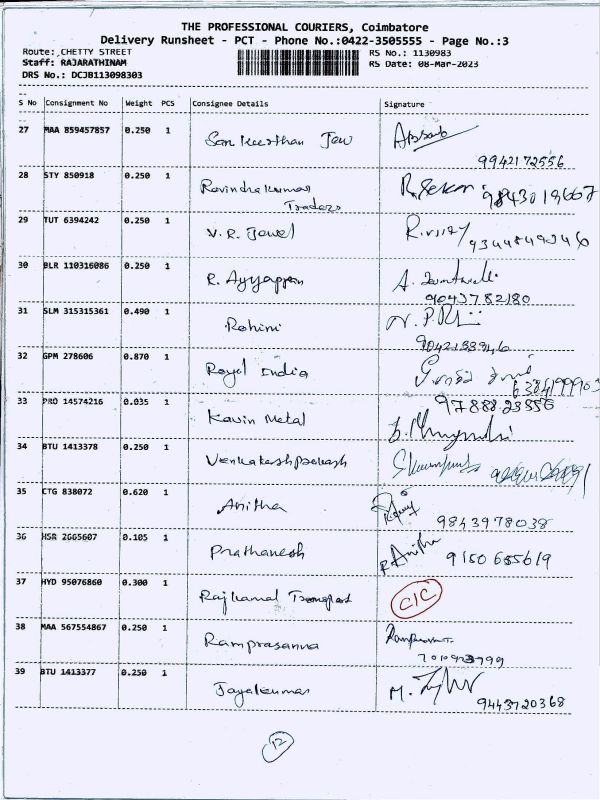 THE PROFESSIONAL COURIERS, Coimbatore
Delivery Runsheet - PCT - Phone No.:0422-3505555 - Page No.:3
Route: CHETTY STREET RS No.: 1130983
Staff: RAJARATHINAM RS Date: 08-Mar-2023
DRS No.: DCJB113098303
S No Consignment No Weight PCS Consignee Details Signature
27 MAA 859457857 0.250 1
9942172556
28 STY 850918 0.250 1 Ravindrakumar Traders R. Sekar 9843019667
29 TUT 6394242 0.250 1 V. R. Jewel R. vijay
30 BLR 110316086 0.250 1 R. Ayyappan A.
9043782180
31 SLM 315315361 0.490 1 Rohini
32 GPM 278606 0.870 1 Royal India
33 PRO 14574216 0.035 1 Kavin Metal 9788823556
34 BTU 1413378 0.250 1 Venkateshprakash
35 CTG 838072 0.620 1 Anitha 9843978038
36 HSR 2665607 0.105 1 Prathanesh R Anitha 9150655619
37 HYD 95076860 0.300 1 Rajkamal C/C
38 MAA 567554867 0.250 1 Ramprasanna
39 BTU 1413377 0.250 1 Jayakumar M.
9443720368
12